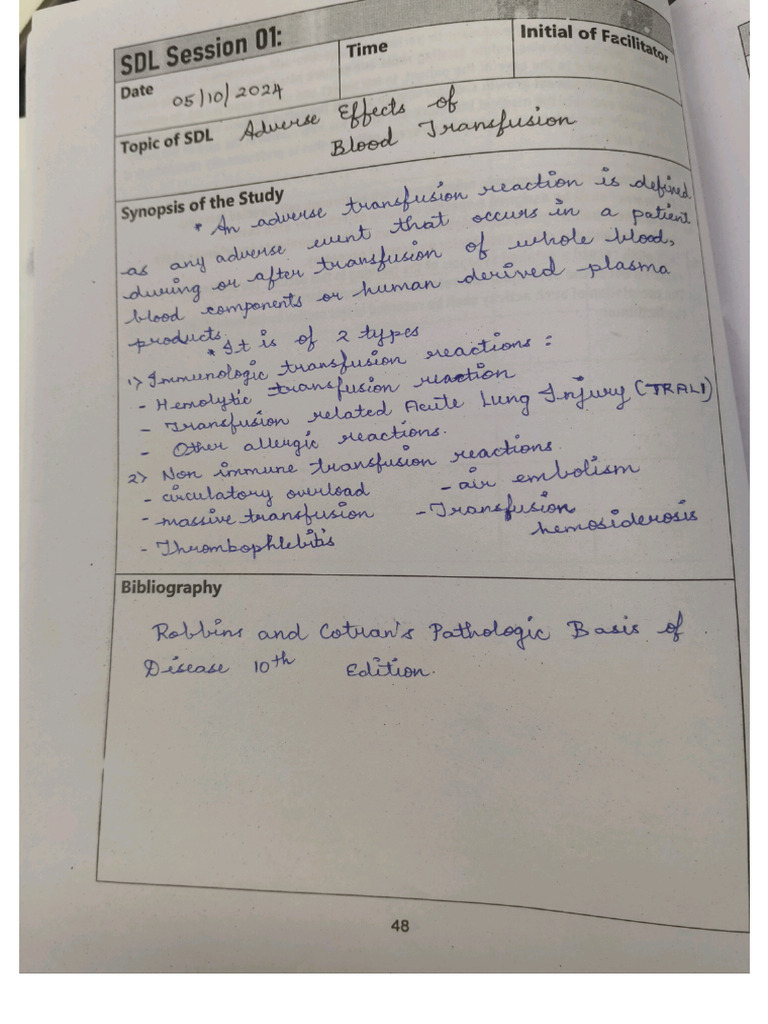 SDL Session 01:
Time
Initial of Facilitator
Date 05/10/2024
Topic of SDL Adverse Effects of
Blood Transfusion
Synopsis of the Study
* An adverse transfusion reaction is defined
as any adverse event that occurs in a patient
during or after transfusion of whole blood,
blood components or human derived plasma
products.
* It is of 2 types
1) Immunologic transfusion reactions :
- Hemolytic transfusion reaction
- Transfusion related Acute Lung Injury (TRALI)
- Other allergic reactions.
2) Non immune transfusion reactions.
- circulatory overload - air embolism
- massive transfusion - Transfusion
hemosiderosis
- Thrombophlebitis
Bibliography
Robbins and Cotran's Pathologic Basis of
Disease 10th Edition.
48